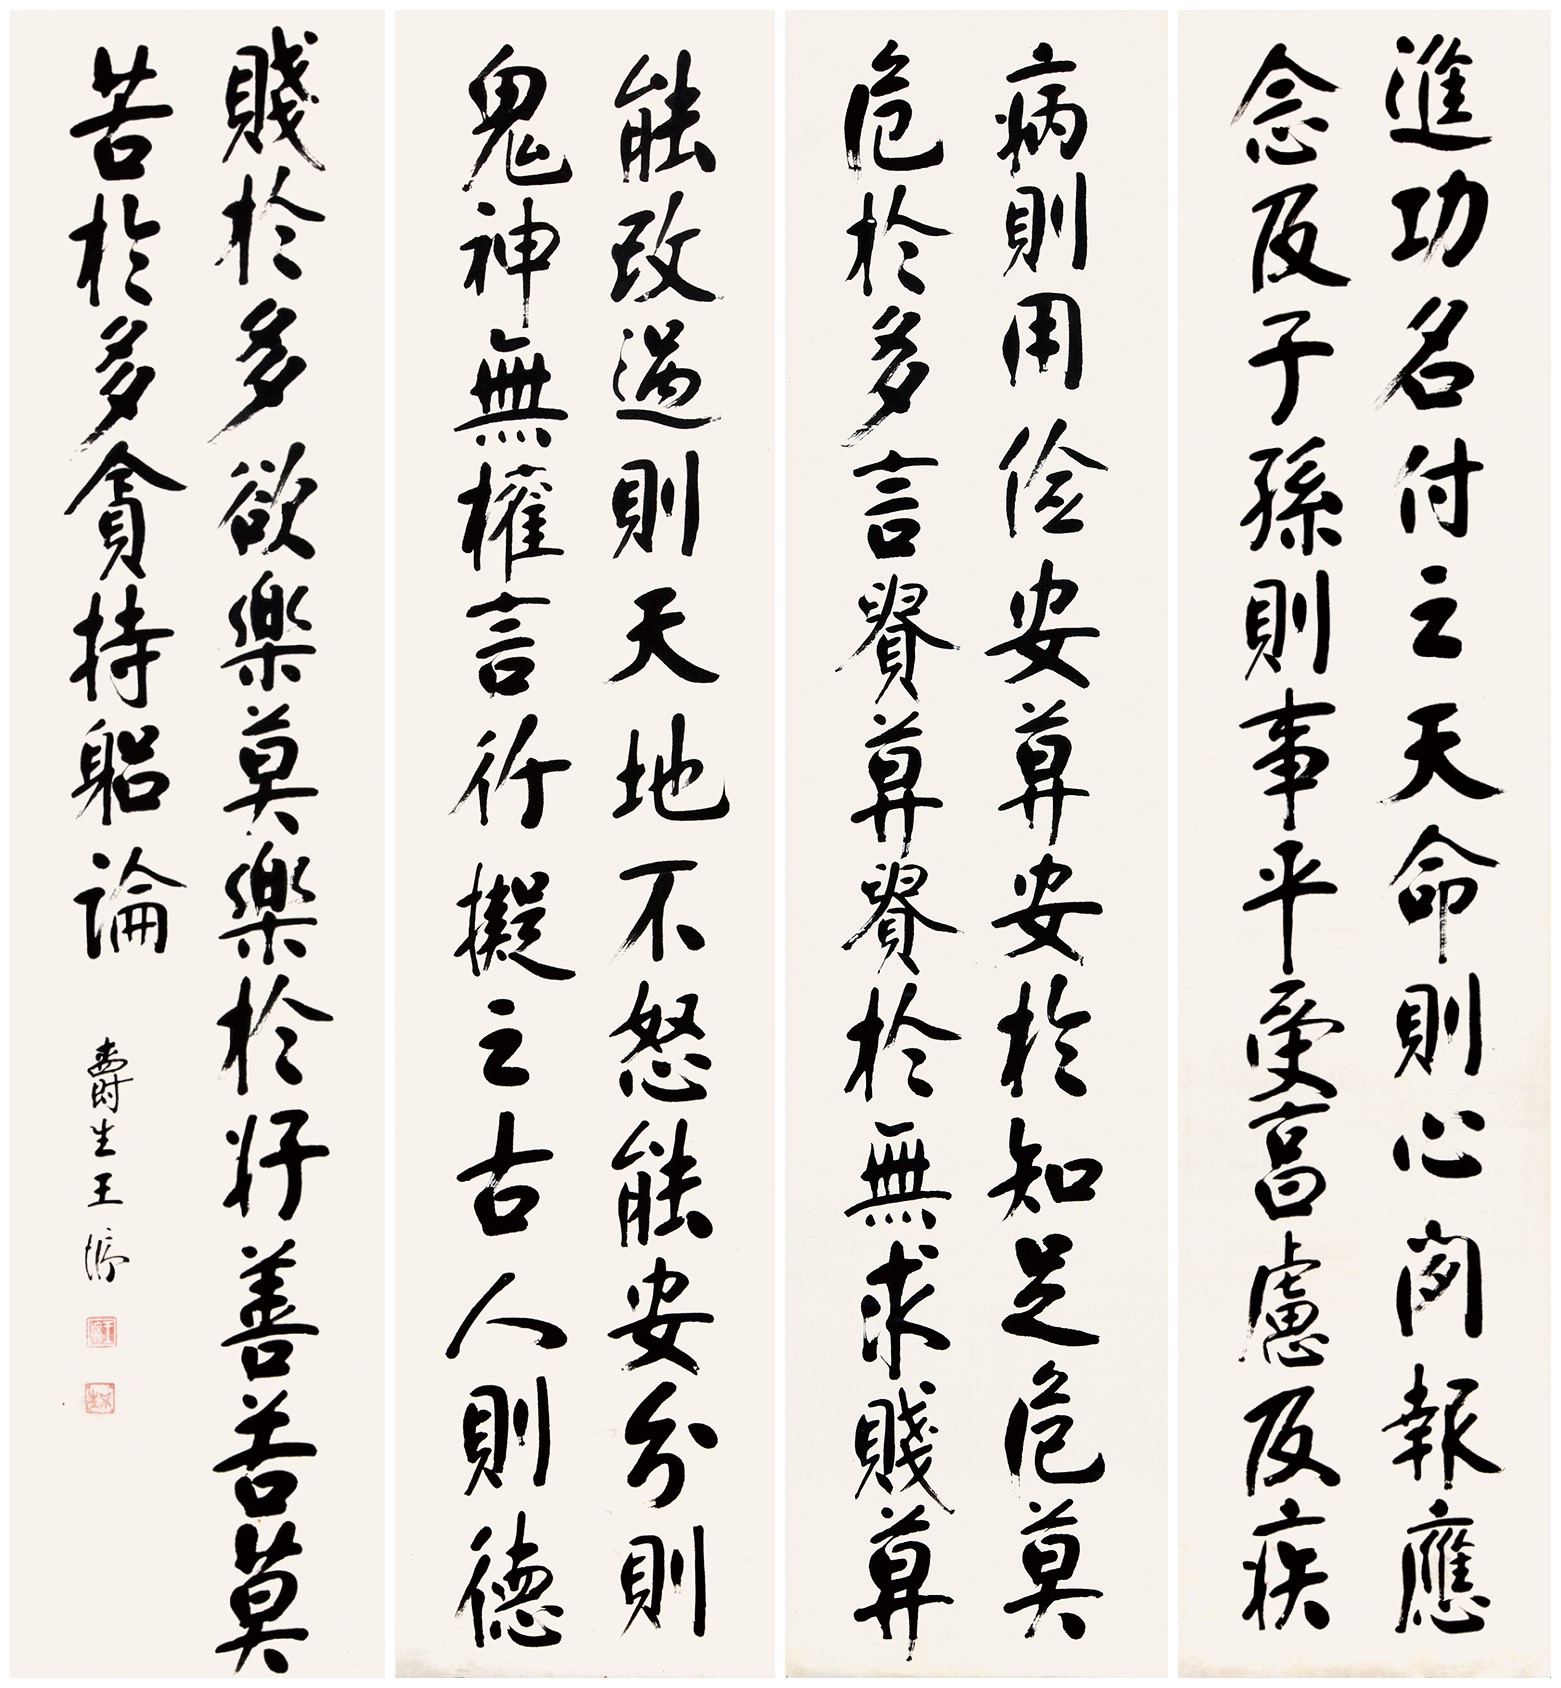 進功名付之天命則心閒報應
念及子孫則事平受亯慮及疾
病則用儉安莫安於知足危莫
危於多言貴莫貴於無求賤莫
能改過則天地不怒能安分則
鬼神無權言行擬之古人則德
賤於多欲樂莫樂於好善苦莫
苦於多貪持躳論
爵生王垿